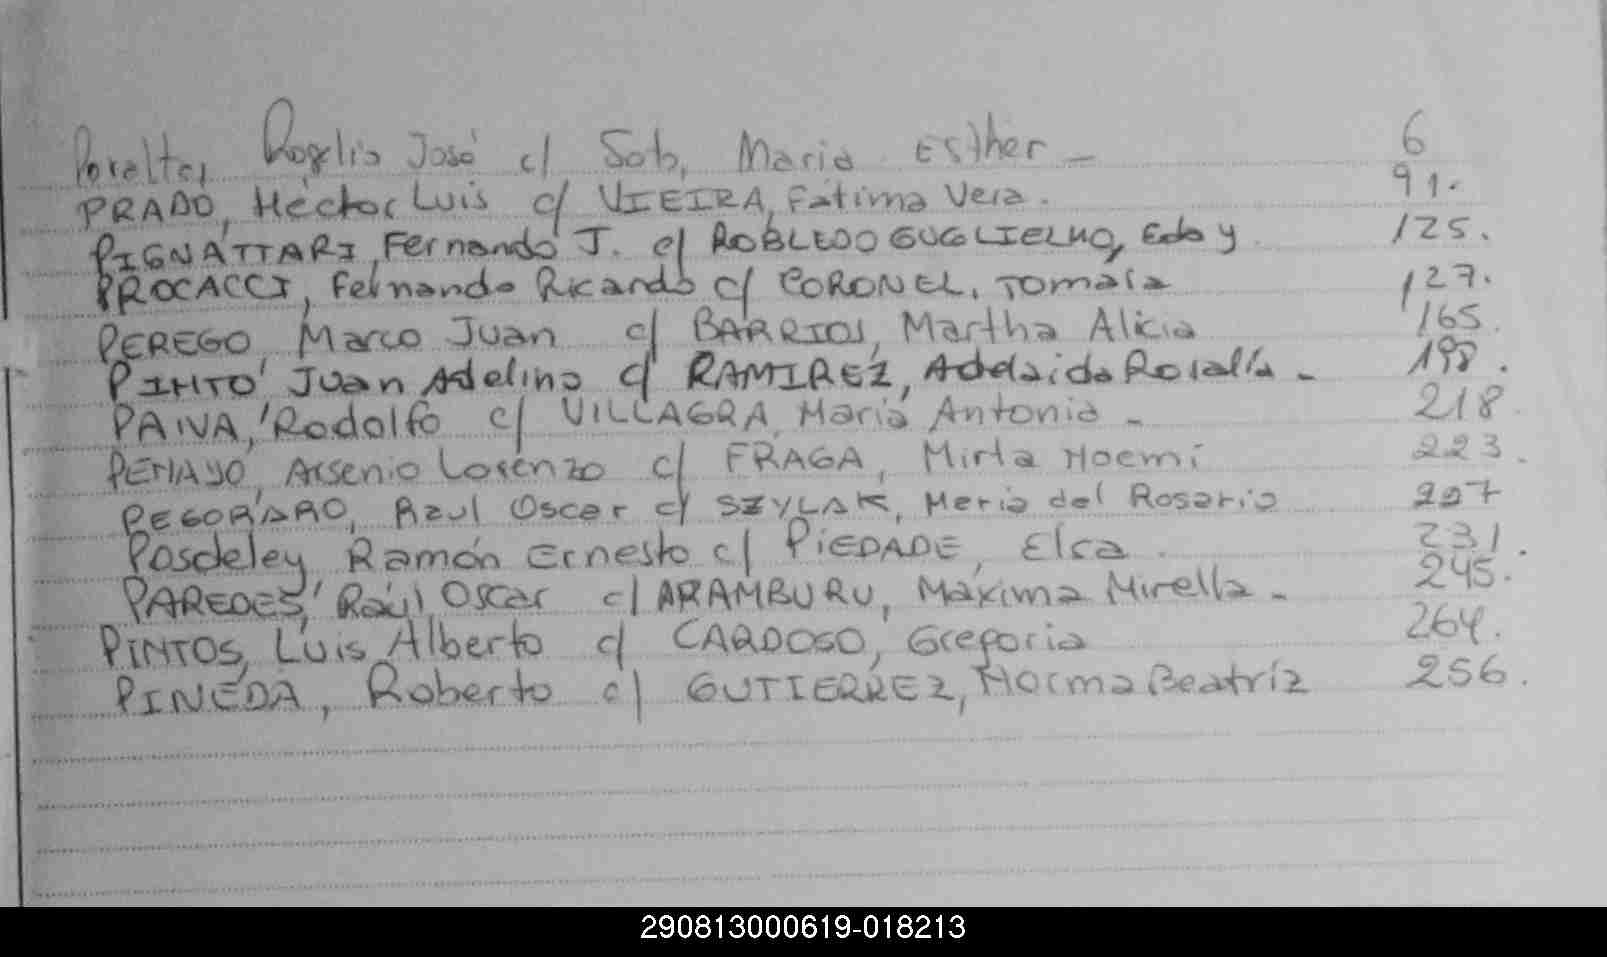 Peralta, Rogelio José c/ Soto, Maria Esther - 6
PRADO, Héctor Luis c/ VIEIRA, Fátima Vera. 91.
PIGNATTARI, Fernando J. c/ ROBLEDO GUGLIELMO, Edo y 125.
PROCACCI, Fernando Ricardo c/ CORONEL, Tomasa 127.
PEREGO, Marco Juan c/ BARRIOS, Martha Alicia 165.
PINTO, Juan Adelino c/ RAMIREZ, Adelaida Rosalía - 198.
PAIVA, Rodolfo c/ VILLAGRA, Maria Antonia - 218.
PENAYO, Arsenio Lorenzo c/ FRAGA, Mirta Noemí 223.
PEGORARO, Raul Oscar c/ SZYLAK, Maria del Rosario 207
Posdeley, Ramón Ernesto c/ PiEDADE, Elsa. 231.
PAREDES, Raúl Oscar c/ ARAMBURU, Máxima Mirella - 245.
PINTOS, Luis Alberto c/ CARDOSO, Gregoria 264.
PINEDA, Roberto c/ GUTIERREZ, Norma Beatríz 256.
290813000619-018213